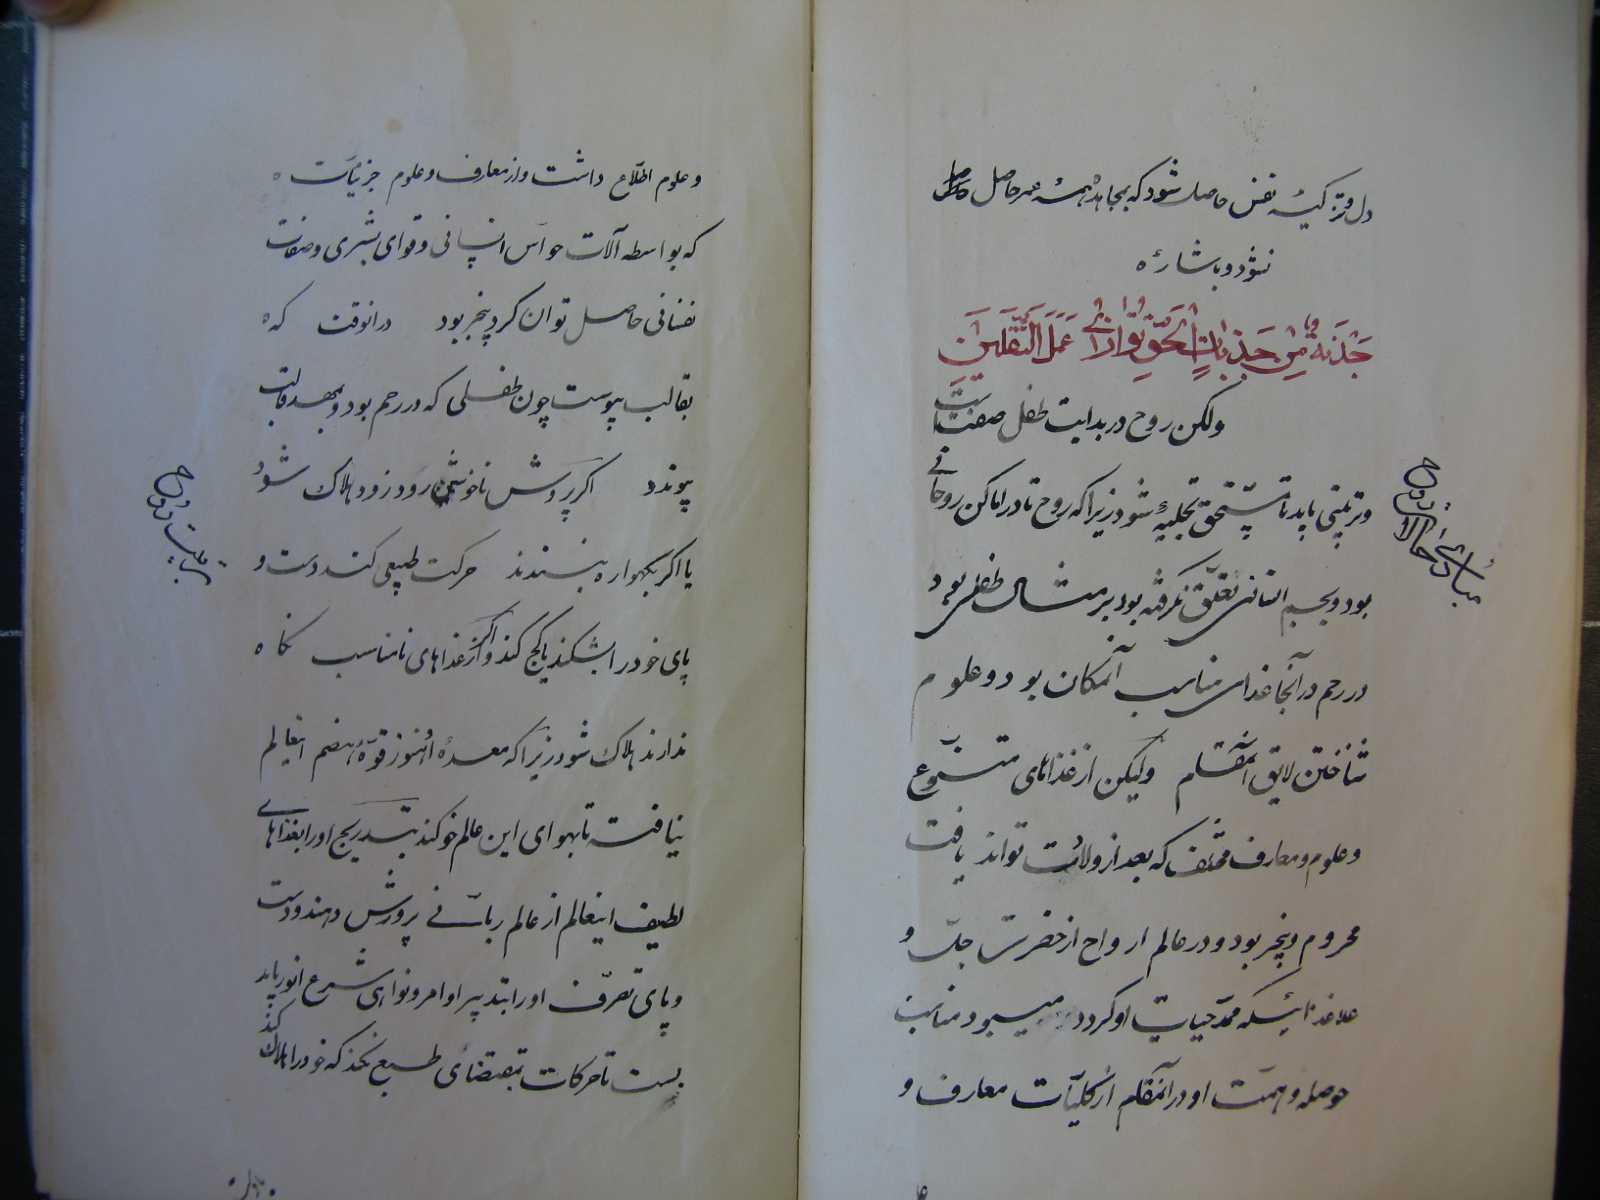 دل و تزکیهٔ نفس حاصل شود که بمجاهدهٔ همه عمر حاصل
نشود و باشارهٔ
جَذْبَةٌ مِنْ جَذَباتِ الْحَقِّ تُوازی عَمَلَ الثَّقَلَیْنِ
ولکن روح در بدایت طفل صفتست
و تربیتی باید تا مستحق تجلیه شود زیرا که روح تا در اماکن روحانی
بود و بجسم انسانی تعلّق نگرفته بود بر مثال طفلی بود
در رحم در آنجا غذای مناسب آنمکان بود و علوم
شناختن لایق آنمقام ولیکن از غذاهای متنوّع
و علوم و معارف مختلف که بعد از ولادت تواند یافت
محروم و بیخبر بود و در عالم ارواح از حضرت جلّ و
علا غذائیکه ممدّ حیات او گردد میبود مناسب
حوصله و همّت او در آنمقام از کلیّات معارف و
مبادی حالات روح
و علوم اطّلاع داشت و از معارف و علوم جزئیّات
که بواسطه آلات حواس انسانی و قوای بشری و صفات
نفسانی حاصل توان کرد بیخبر بود در آنوقت که
بقالب پیوست چون طفلی که در رحم بود و بمهد قالب
پیوندد اگر پرورش ناخوشمن رود زود هلاک شود
یا اگر بگهواره نبندند حرکت طبیعی کند دست و
پای خود را بشکند یا کج کند و اگر از غذاهای نامناسب نگاه
ندارند هلاک شود زیرا که معدهٔ او هنوز قوّهٔ هضم اینعالم
نیافته تا بهوای این عالم خو کند بتدریج او را بغذاهای
لطیف اینعالم از عالم ربّانی پرورش دهند و دست
و پای تصرّف او را بتدبیر اوامر و نواهی شرع انور باید
بست تا حرکات بمقتضای طبع نکند که خود را هلاک کند
تربیت روح